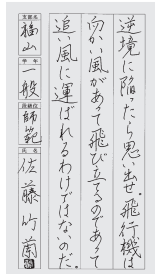 逆境に陥ったら思い出せ。飛行機は
向かい風があって飛び立てるのであって
追い風に運ばれるわけではないのだ。
支部名
福山
学年
一般
段級位
師範
氏名
佐藤竹蘭